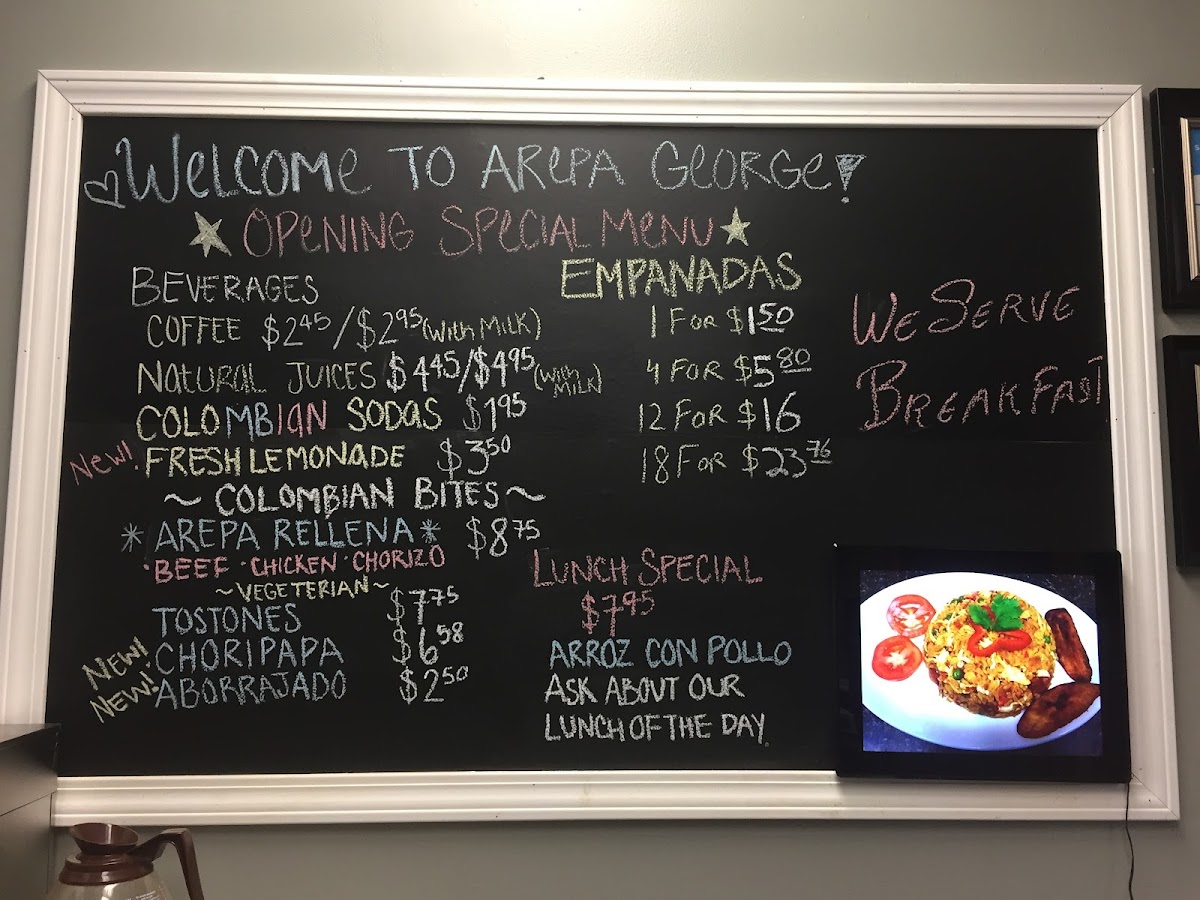 Welcome to Arepa George!
Opening Special Menu
Beverages
Coffee $2.45/$2.95 (with milk)
Natural Juices $4.45/$4.95 (with milk)
Colombian Sodas $1.95
New! Fresh Lemonade $3.50
~ Colombian Bites ~
* Arepa Rellena * $8.75
· Beef · Chicken · Chorizo
~ Vegeterian ~
Tostones $7.75
New! Choripapa $6.58
New! Aborrajado $2.50
Empanadas
1 for $1.50
4 for $5.80
12 for $16
18 for $23.76
Lunch Special
$7.95
Arroz con Pollo
Ask about our
Lunch of the Day.
We Serve
Breakfast